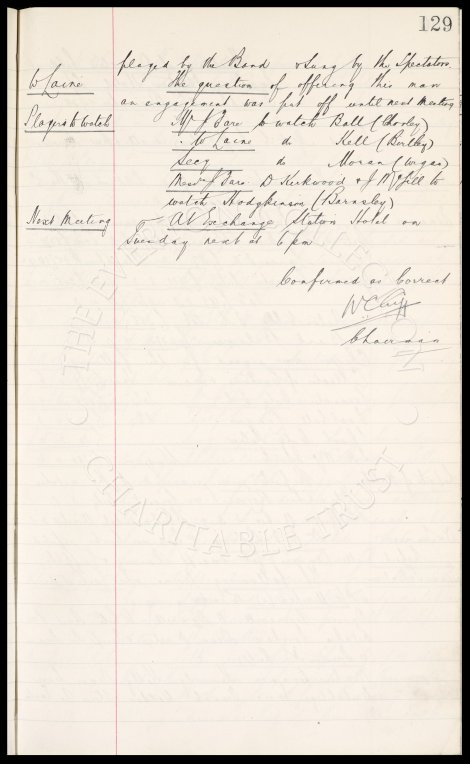 129
played by the Band & sung by the Spectators.
W Laine The question of offering this man
an engagement was put off until next meeting
Players to Watch Mr J Tare to watch Ball (Chorley)
" W Laine do Kell (Bartley)
Secy do Moran (Wigan)
Messrs J Tare. D Kirkwood & J McGill to
watch Hodgkinson (Barnsley)
Next Meeting At Exchange Station Hotel on
Tuesday next at 6 pm
Confirmed as Correct
W C Cuff
Chairman
THE EVERTON COLLECTION
CHARITABLE TRUST